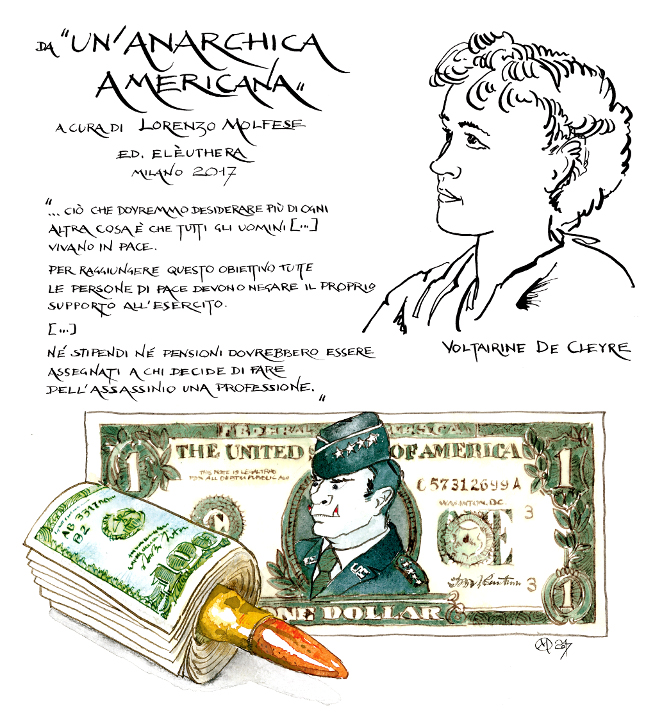 DA "UN'ANARCHICA
AMERICANA"
A CURA DI LORENZO MOLFESE
ED. ELÈUTHERA
MILANO 2017
"... CIÒ CHE DOVREMMO DESIDERARE PIÙ DI OGNI
ALTRA COSA È CHE TUTTI GLI UOMINI [...]
VIVANO IN PACE.
PER RAGGIUNGERE QUESTO OBIETTIVO TUTTE
LE PERSONE DI PACE DEVONO NEGARE IL PROPRIO
SUPPORTO ALL'ESERCITO.
[...]
NÉ STIPENDI NÉ PENSIONI DOVREBBERO ESSERE
ASSEGNATI A CHI DECIDE DI FARE
DELL'ASSASSINIO UNA PROFESSIONE."
VOLTAIRINE DE CLEYRE
FEDERAL
THE UNITED S OF AMERICA
1
1
C 57312699A
WASHINGTON, D.C.
3
ONE
US
3
1
ONE DOLLAR
B2
100